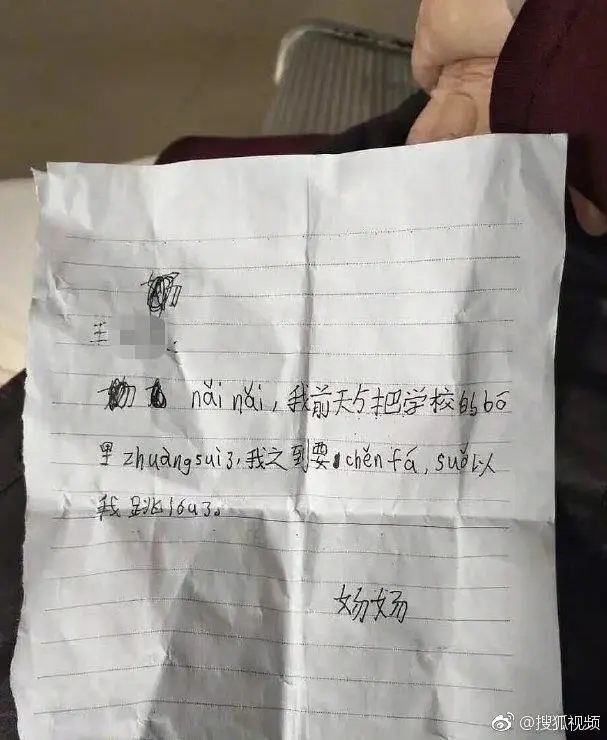 王:
nǎi nǎi，我前天与把学校的bō
里zhuàng suì了，我之到要chěn fá，suǒ以
我跳lóu了。
@搜狐视频